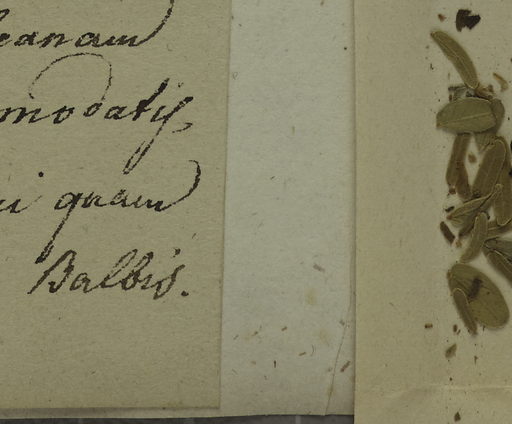 eanam
modatis
ui quam
Balbis.